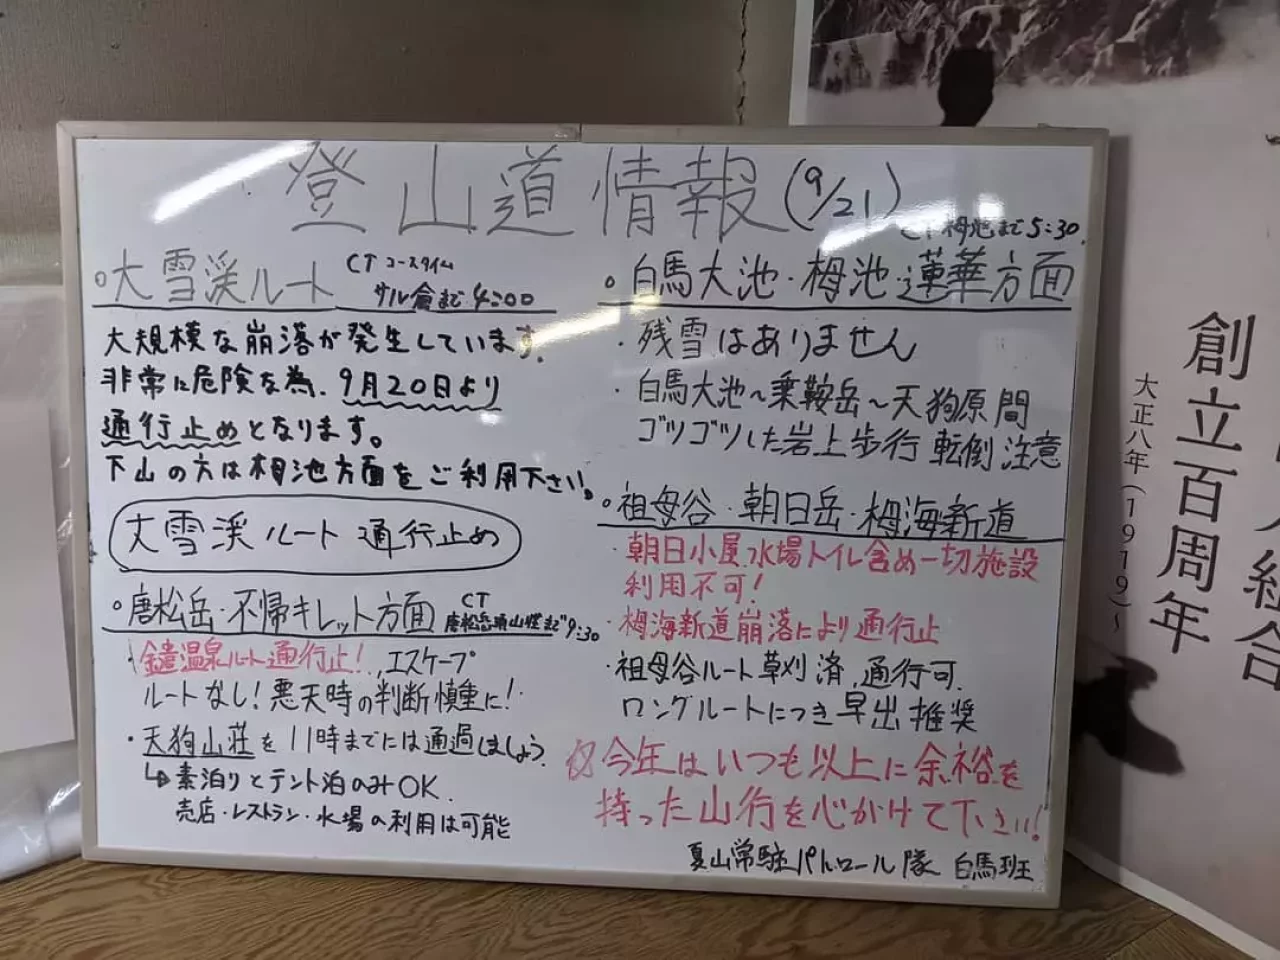 登山道情報(9/21)
○大雪渓ルート CT コースタイム
サル倉まで 4:00
大規模な崩落が発生しています。
非常に危険な為、9月20日より
通行止めとなります。
下山の方は栂池方面をご利用下さい。
大雪渓ルート通行止め
○唐松岳・不帰キレット方面 CT
唐松岳頂上山荘まで9:30
・鑓温泉ルート通行止!、エスケープ
ルートなし!悪天時の判断慎重に!
・天狗山荘を11時までには通過しましょう
↳素泊りとテント泊のみOK.
売店・レストラン・水場の利用は可能
CT 栂池まで5:30.
○白馬大池・栂池・蓮華方面
・残雪はありません
・白馬大池~乗鞍岳~天狗原間
ゴツゴツした岩上歩行 転倒注意
○祖母谷・朝日岳・栂海新道
・朝日小屋、水場トイレ含め一切施設
利用不可!
・栂海新道崩落により通行止
・祖母谷ルート草刈済、通行可.
ロングルートにつき早出推奨
☆今年はいつも以上に余裕を
持った山行を心がけて下さい!
夏山常駐パトロール隊 白馬班
創立百周年
大正八年(1919)~